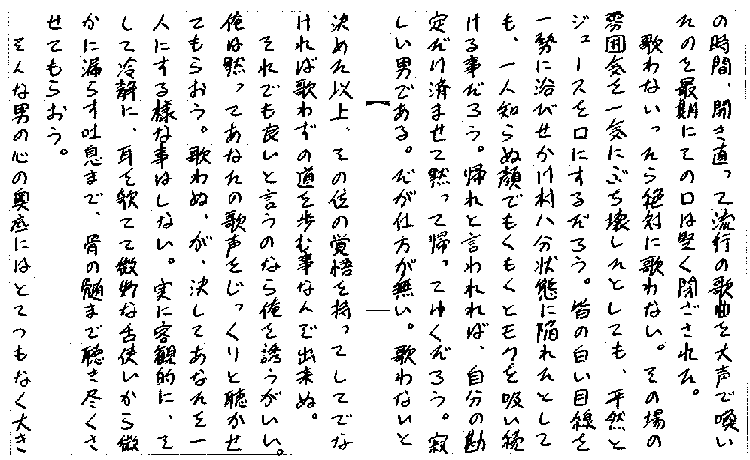 の時間、開き直って流行の歌曲を大声で喚い
たのを最期にその口は堅く閉ざされた。
　歌わないったら絶対に歌わない。その場の
雰囲気を一気にぶち壊したとしても、平然と
ジュースを口にするだろう。皆の白い目線を
一勢に浴びせかけ村八分状態に陥れたとして
も、一人知らぬ顔でもくもくとモクを吸い続
ける事だろう。帰れと言われれば、自分の勘
定だけ済ませて黙って帰ってゆくだろう。寂
しい男である。だが仕方が無い。歌わないと
決めた以上、その位の覚悟を持ってしてでな
ければ歌わずの道を歩む事なんで出来ぬ。
　それでも良いと言うのなら俺を誘うがいい。
俺は黙ってあなたの歌声をじっくりと聴かせ
てもらおう。歌わぬ、が、決してあなたを一
人にする様な事はしない。実に客観的に、そ
して冷静に、耳を欹てて微妙な舌使いから微
かに漏らす吐息まで、骨の髄まで聴き尽くさ
せてもらおう。
　そんな男の心の奥底にはとてつもなく大き